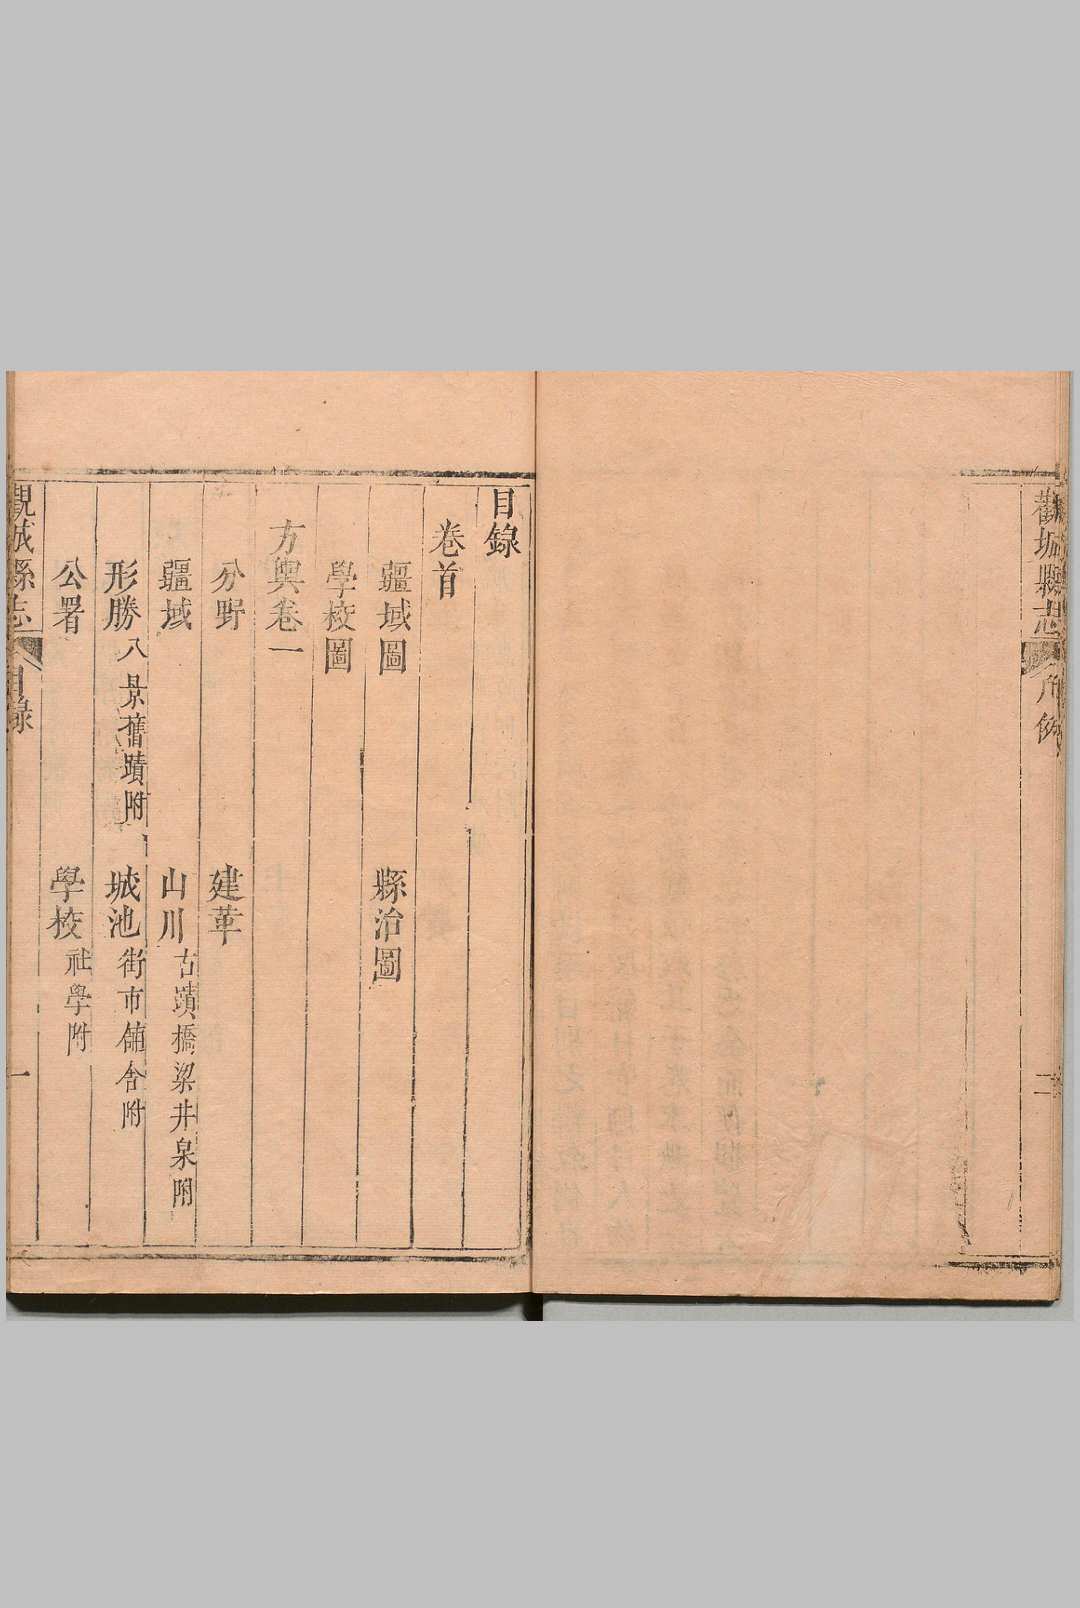 觀城縣志
二
目錄
卷首
疆域圖　縣治圖
學校圖
方輿卷一
分野　建革
疆域　山川古蹟橋梁井泉附
形勝八景舊蹟附　城池街市鋪舍附
公署　學校社學附
觀城縣志　目錄　一